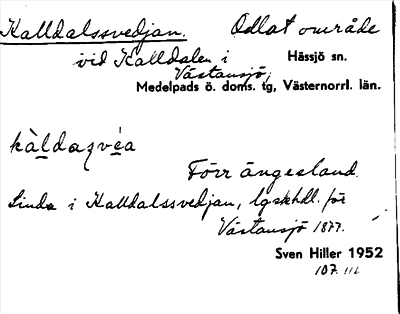 Kalldalssvedjan. Odlat område
vid Kalldalen i Hässjö sn.
Västansjö,
Medelpads ö. doms. tg, Västernorrl. län.
kàldazvéa
Förr ängesland.
Linda i Kalldalssvedjan, lgskhdl. för
Västansjö 1877.
Sven Hiller 1952
107